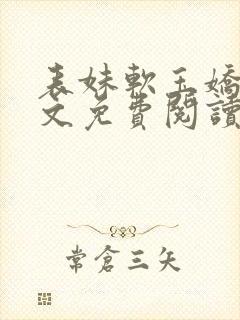 表妹軟玉嬌
文免費閱讀
常倉三矢